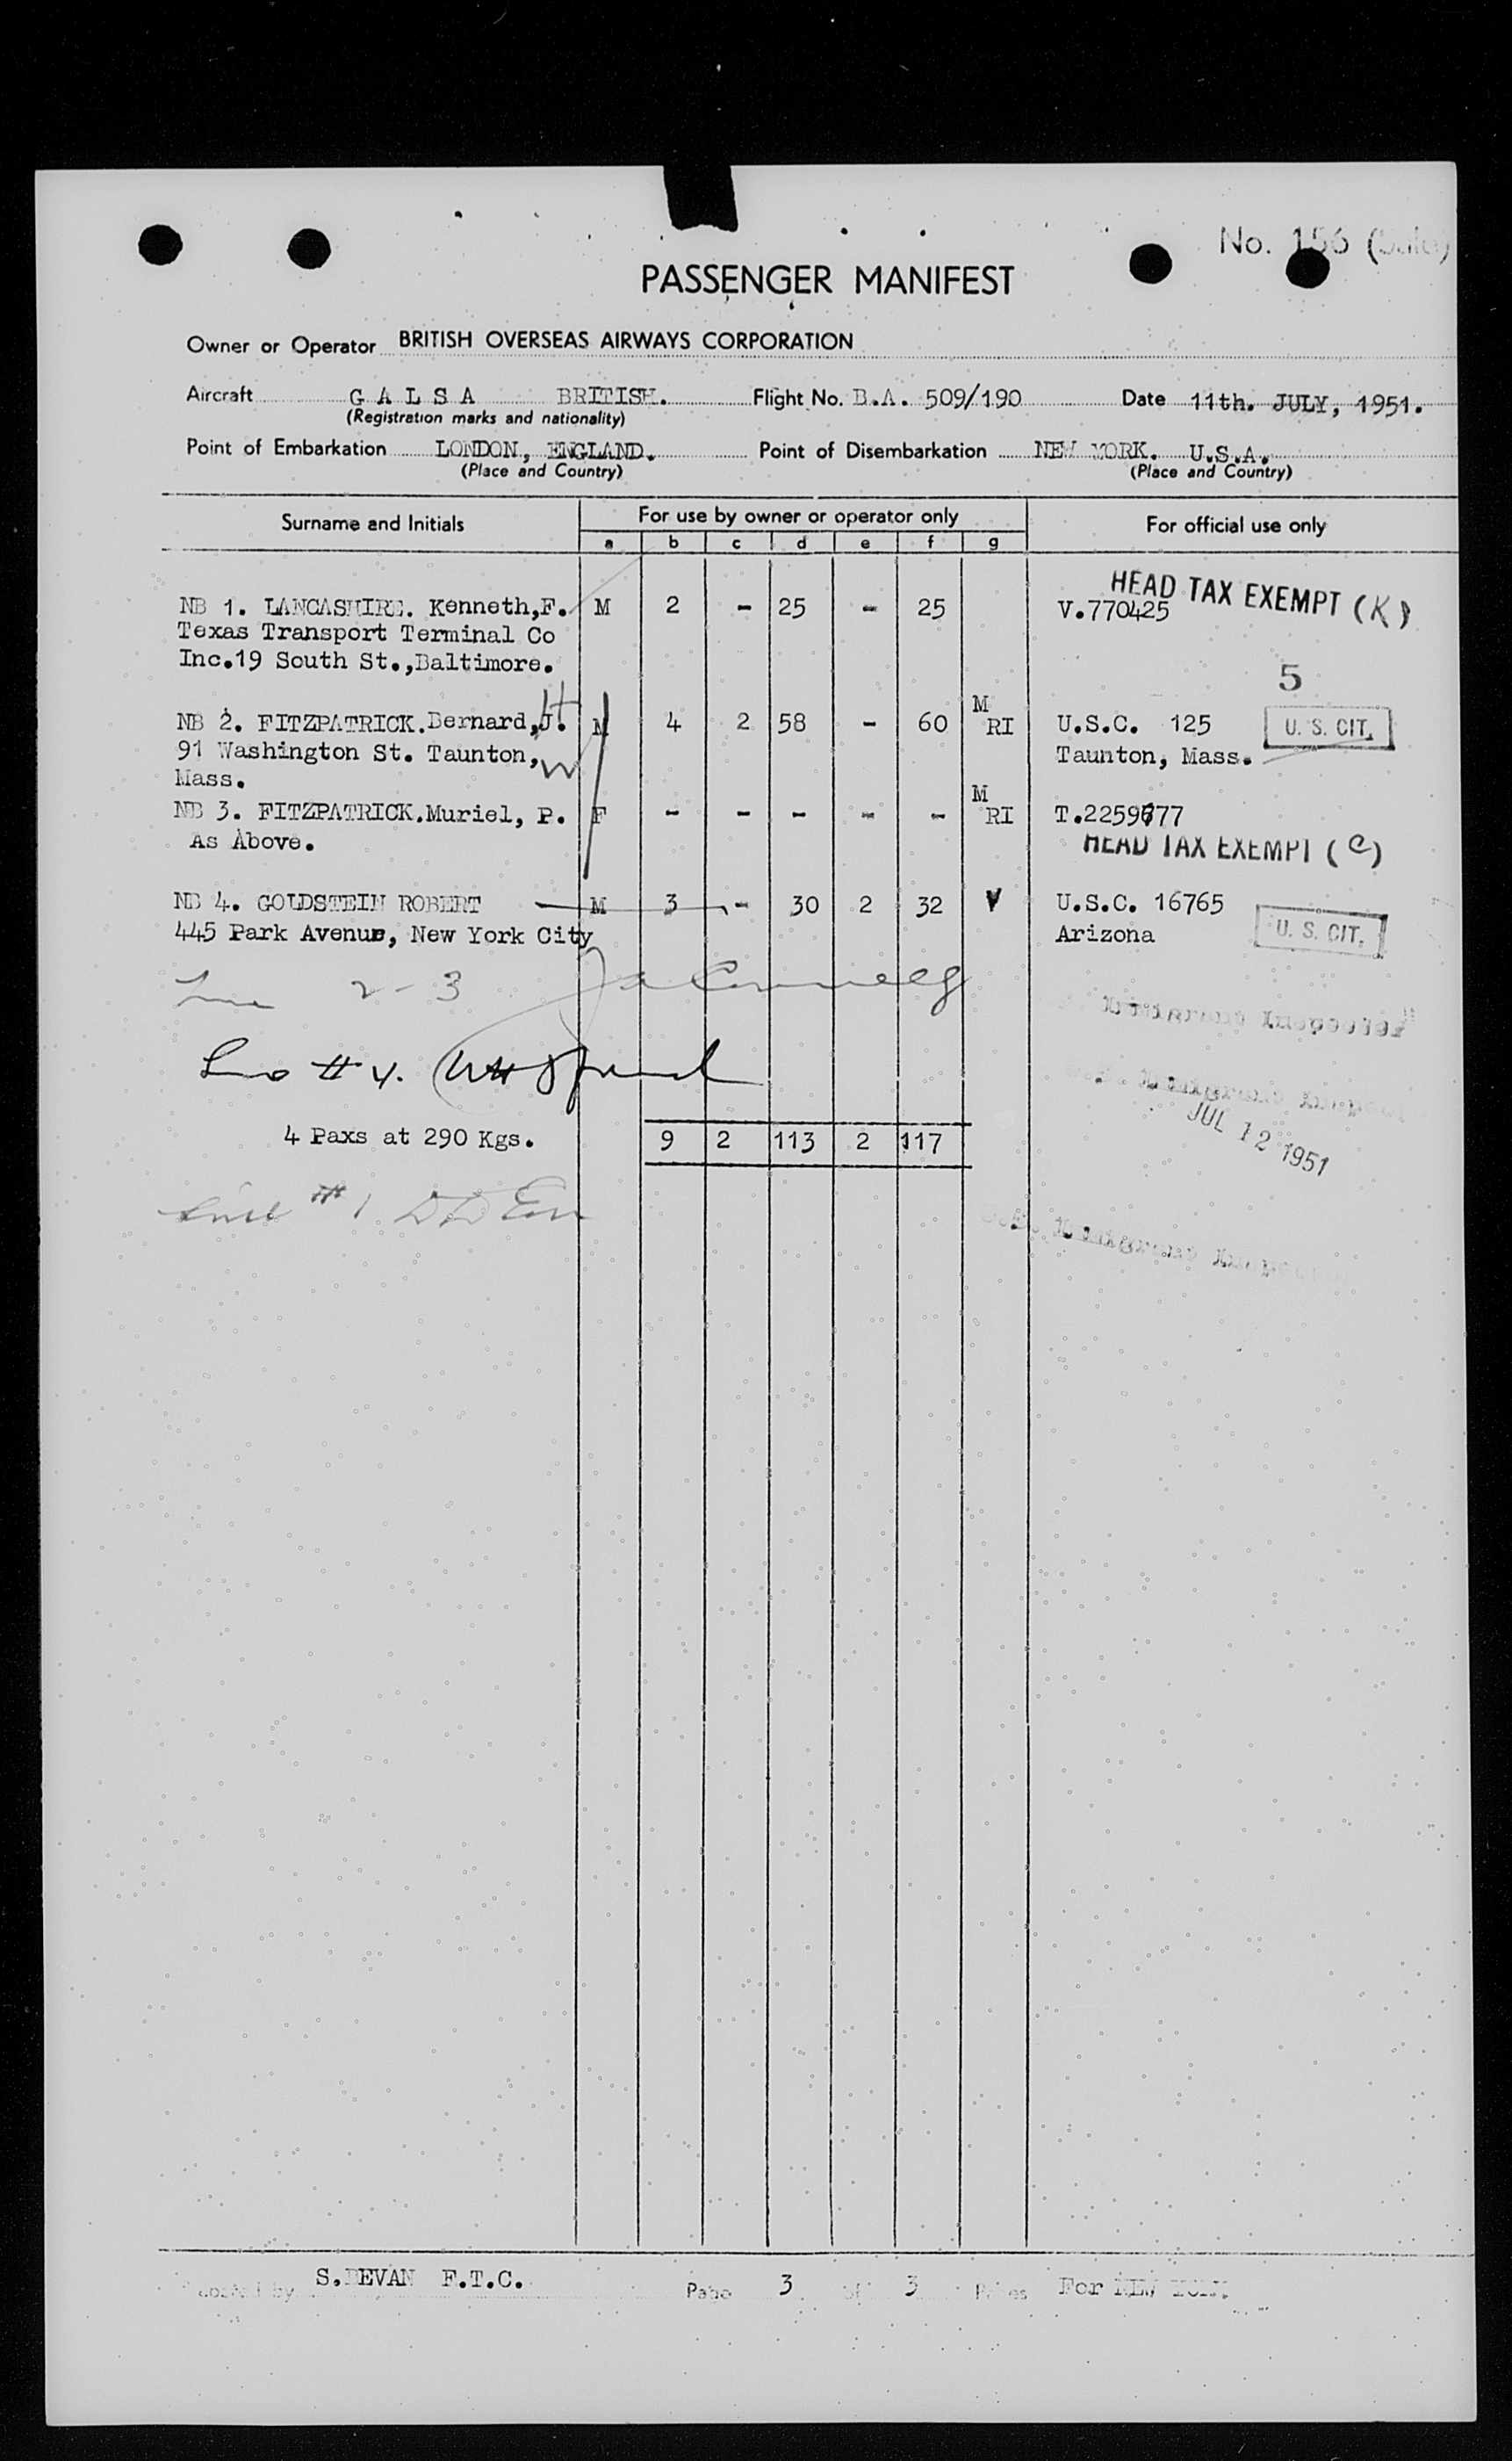 No. 156
PASSENGER MANIFEST
Owner or Operator BRITISH OVERSEAS AIRWAYS CORPORATION
Aircraft G A L S A BRITISH. Flight No. B.A. 509/190 Date 11th. JULY, 1951.
(Registration marks and nationality)
Point of Embarkation LONDON, ENGLAND. Point of Disembarkation NEW YORK. U.S.A.
(Place and Country) (Place and Country)
Surname and Initials For use by owner or operator only For official use only
a b c d e f g
HEAD TAX EXEMPT (K)
NB 1. LANCASHIRE. Kenneth,F. M 2 - 25 - 25 V.770425
Texas Transport Terminal Co
Inc.19 South St.,Baltimore.
5
NB 2. FITZPATRICK.Bernard,J. H M 4 2 58 - 60 M RI U.S.C. 125 U. S. CIT.
91 Washington St. Taunton, W Taunton, Mass.
Mass.
NB 3. FITZPATRICK.Muriel, P. F - - - - - M RI T.2259677
As Above. HEAD TAX EXEMPT (C)
NB 4. GOLDSTEIN ROBERT M 3 - 30 2 32 V U.S.C. 16765
445 Park Avenue, New York City Arizona U. S. CIT.
Line 2-3
#4.
JUL 12 1951
4 Paxs at 290 Kgs. 9 2 113 2 117
Line #1
S.BEVAN F.T.C. Page 3 of 3 Pages For NEW YORK.